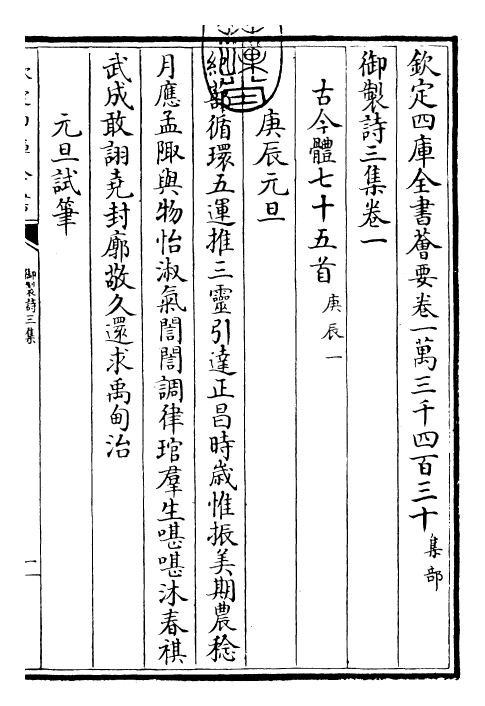 欽定四庫全書薈要卷一萬三千四百三十集部
御製詩三集卷一
古今體七十五首庚辰一
庚辰元旦
紀蔀循環五運推三靈引達正昌時歲惟振美期農稔
月應孟陬與物怡淑氣誾誾調律琯羣生喁喁沐春祺
武成敢詡堯封廓敬久還求禹甸治
元旦試筆
御製詩三集
一